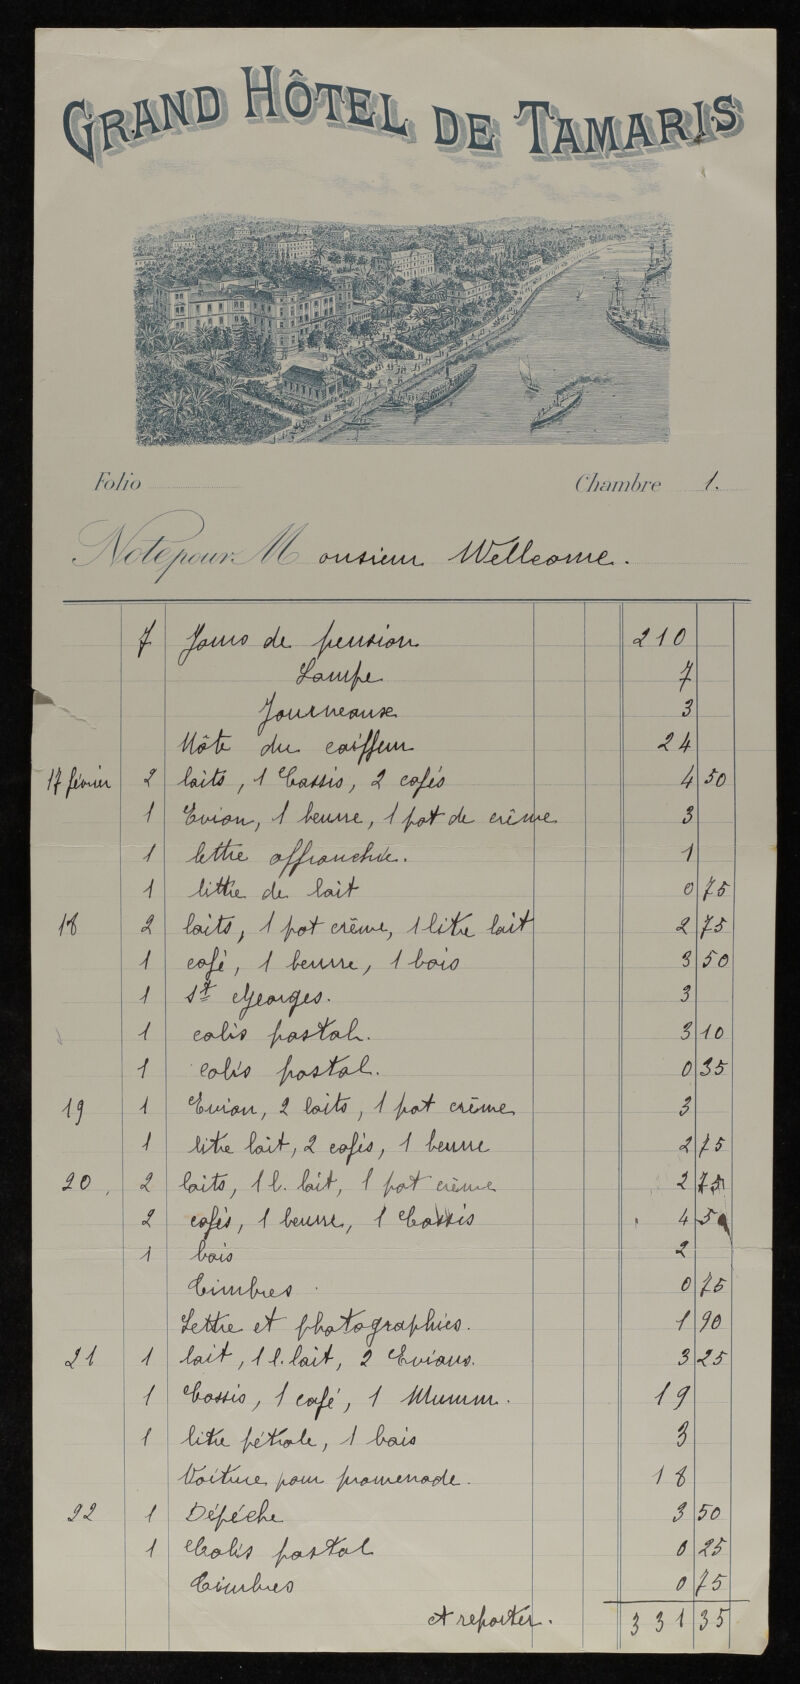 GRAND HÔTEL DE TAMARIS
Folio Chambre 1.
Note pour Monsieur Wellcome.
7 Jours de pension 210
Lampe 7
Journeaux 3
Nôte du coiffeur 24
17 février 2 laits, 1 Cassis, 2 cafés 4 50
1 Evian, 1 beurre, 1 pot de crême 3
1 lettre affranchie. 1
1 littre de lait 0 75
18 2 laits, 1 pot crême, 1 litre lait 2 75
1 café, 1 beurre, 1 bois 3 50
1 St Georges. 3
1 colis postal. 3 10
1 colis postal. 0 35
19 1 Evian, 2 laits, 1 pot crême 3
1 litre lait, 2 cafés, 1 beurre 2 75
20 2 laits, 1 l. lait, 1 pot crême 2 75
2 cafés, 1 beurre, 1 Cassis 4 50
1 bois 2
Timbres 0 75
Lettre et photographies. 1 90
21 1 lait, 1 l. lait, 2 Evians. 3 25
1 Cassis, 1 café, 1 Mumm. 19
1 litre pétrole, 1 bois 3
Voiture pour promenade. 18
22 1 Dépéche 3 50
1 Colis postal 0 25
Timbres 0 75
A reporter. 331 35